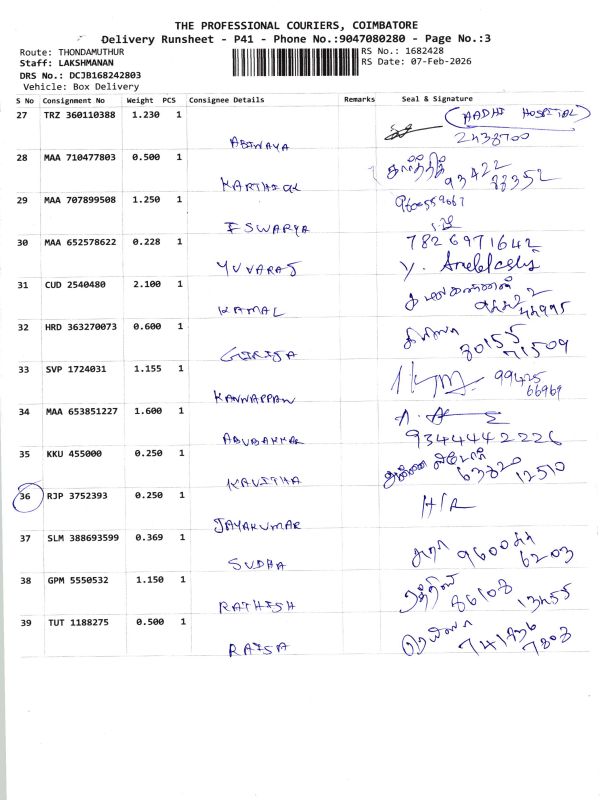 THE PROFESSIONAL COURIERS, COIMBATORE
Delivery Runsheet - P41 - Phone No.:9047080280 - Page No.:3
Route: THONDAMUTHUR
RS No.: 1682428
Staff: LAKSHMANAN
RS Date: 07-Feb-2026
DRS No.: DCJB168242803
Vehicle: Box Delivery
S No Consignment No Weight PCS Consignee Details Remarks Seal & Signature
27 TRZ 360110388 1.230 1 AADHI HOSPITAL
ABINAYA 2438700
28 MAA 710477803 0.500 1 கார்த்திக்
KARTHICK 93422 88352
29 MAA 707899508 1.250 1
ESWARYA
30 MAA 652578622 0.228 1 7826971642
YUVARAJ Y.
31 CUD 2540480 2.100 1
KAMAL 44995
32 HRD 363270073 0.600 1 கிரிஜா
GIRIJA 80155 71509
33 SVP 1724031 1.155 1 99425
KANNAPPAN 66969
34 MAA 653851227 1.600 1
ABUBAKKAR 9344442226
35 KKU 455000 0.250 1
KAVITHA 63820 12510
36 RJP 3752393 0.250 1 H/R
JAYAKUMAR
37 SLM 388693599 0.369 1 சுதா 96004
SUDHA 6203
38 GPM 5550532 1.150 1
RATHISH 86108 13455
39 TUT 1188275 0.500 1
RAISA 7803